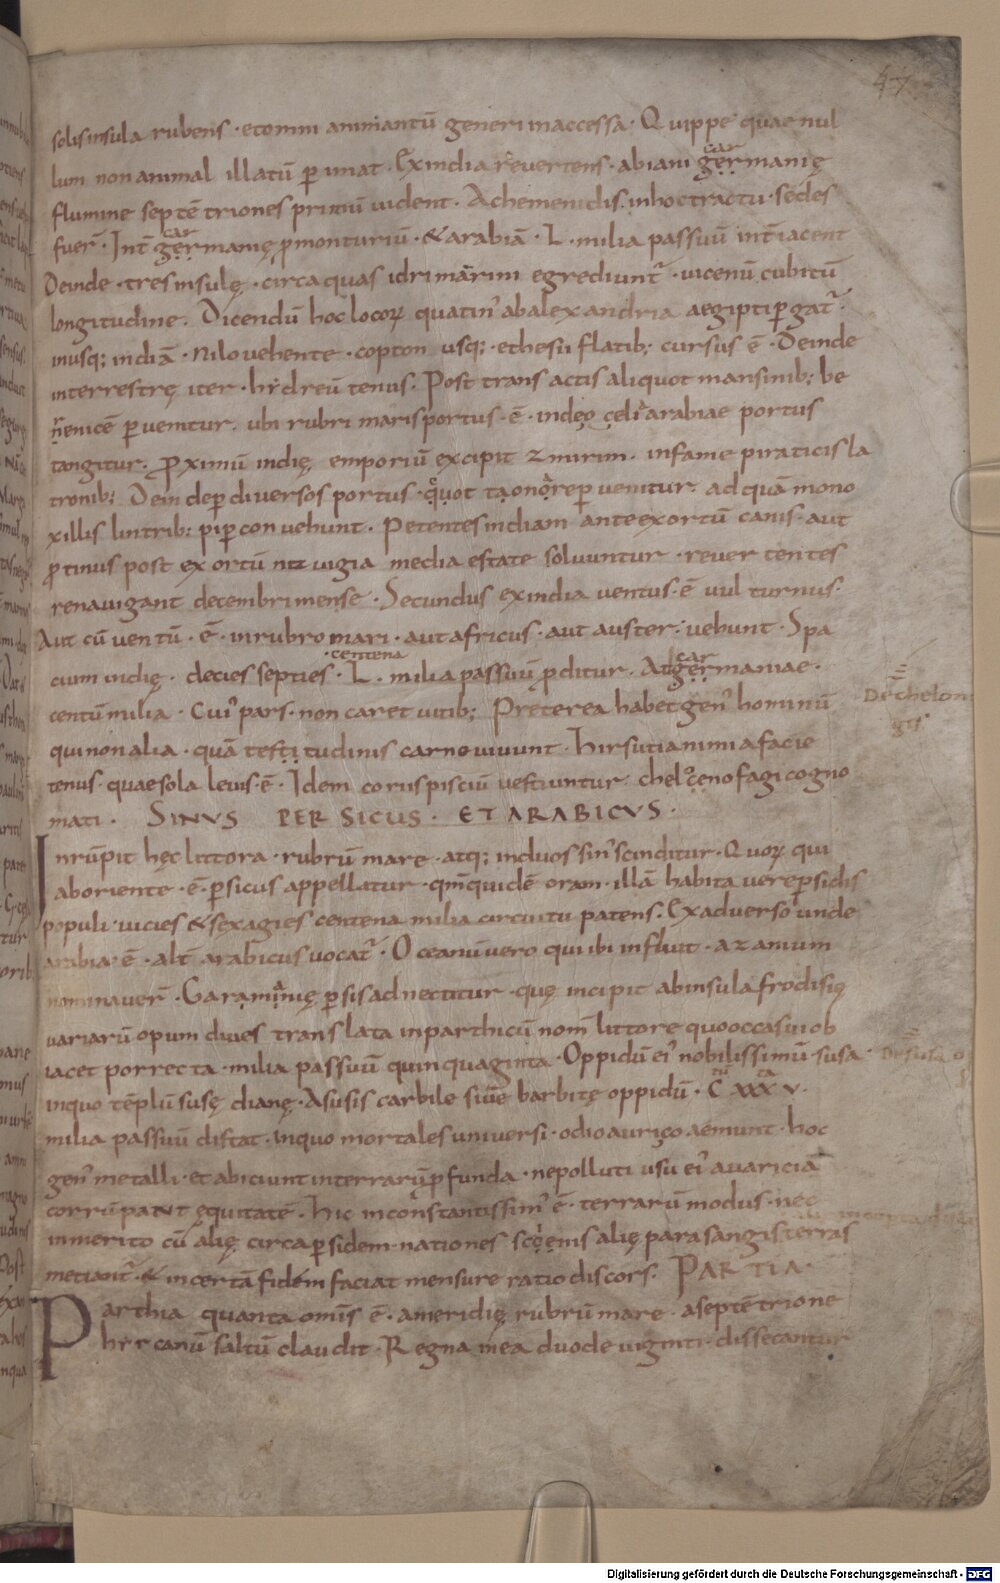 47
solis insula rubens · et omni animantū generi inaccessa · Quippe quae nul
lum non animal illatū ꝑ imat · Ex india revertens · abiani germanię
car
flumine septē triones primū vident · Achemenidis inhoc tractu · sedes
fuer̄ · Int̄ germanię ꝓmonturiū · & arabiā · L · milia passuū int̄iacent
car
Deinde · tres insulę · circa quas idri marini egrediunt᷑ · vicenū cubitū
longitudine · Dicendū hoc locoꝝ quatin᾿ ab alexandria aegipti ꝑgat᷑ ·
inusq; indiā · Nilo vehente · copton usq; · ethesii flatib; cursus ē · Deinde
interrestrę iter · hẏdreū tenus · Post trans actis aliquot mansinib; be
nenicē ꝑvenitur · ubi rubri maris portus · ē · indęo çeli arabiae portus
tangitur · ꝓximū indię emporiū excipit zmirim · infame piraticis la
tronib; Dein deꝑ diversos portus · quot taonore ꝑvenitur · ad quā mono
xillis lintrib; pipꝑ convehunt · Petentes indiam ante exortū canis · aut
ꝓtinus post exortū navigia media estate solvuntur · rever tentes
renavigant decembri mense · Secundus ex india ventus · ē vulturnus ·
Aut cū ventū · ē · in rubro mari · aut africus · aut auster · vehunt · Spa
cium indię · decies septies · L · milia passuū ꝓditur · At germaniae ·
centena
car
centū milia · Cui᾿ pars · non caret vitib; Preterea habet gen᾿ hominū
qui non alia · quā testitudinis carne vivunt · hirsuti animi a facie
De chelon
tenus · quae sola levis · ē · Idem coriis pisciū vestiuntur · chelocenofagi cogno
mati · SINVS PERSICUS · ET ARABICVS ·
Inrūpit hęc littora · rubrū mare · atq; in duos sin᾿ scinditur · Quoꝝ qui
ab oriente · ē · ꝑsicus appellatur · qm̄ quidē oram · illā habitavere ꝑsidis
populi · vicies & sexagies centena milia circuitu patens · Ex adverso unde
arabia · ē · alt̄ arabicus vocat᷑ · Oceanū vero qui ibi influit · azanium
nominaver̄ · Garaminię ꝑsis adnectitur · quę incipit ab insula frodisię
variarū opum dives translata in parthicū nom̄ littore quo occasui ob
iacet porrecta · milia passuū quinquaginta · Oppidū ei᾿ nobilissimū · susa ·
De susa
in quo tēplū susę dianę · A susis carbile sive barbitę oppidū · C XXX V ·
tū ta
milia passuū distat · in quo mortales universi · odio auri çoaemunt · hoc
gen᾿ metalli · et abiciunt in terrarū ꝓfunda · ne polluti usu ei᾿ avariciā
corrūpaNt ęquitatē · hic inconstantissim᾿ ē · terrarū modus · nec
inmerito cū alię circa ꝑsidem nationes scęnis alię parasangis terras
metiant᷑ · & incertā fidem faciat mensure ratio discors · PARTIA ·
Parthia quanta omīs ē · a meridię rubrū mare · a septētrione
hẏrcanū saltū claudit · Regna in ea duode viginti · dissecantur
Digitalisierung gefördert durch die Deutsche Forschungsgemeinschaft - DFG